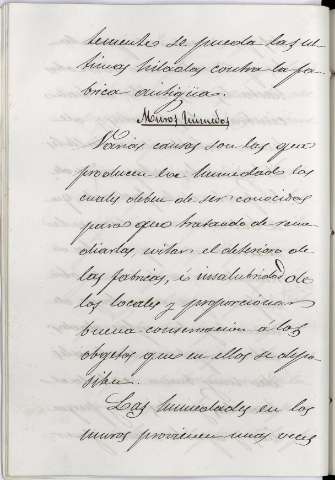 temente se pueda las ul-
timas hiladas contra la fá-
brica antigua.
Muros húmedos
Varias causas son las que
producen la humedad las
cuales deben de ser conocidas
para que tratando de reme-
diarlas, evitar el deterioro de
las fabricas, é insalubridad de
los locales y proporcionar
buena conservacion á los
objetos que en ellos se depo-
siten.
Las humedades en los
muros provienen unas veces